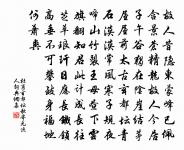 故人昔隱東蒙峰已佩
含景蒼精龍故人今居
子午谷獨在陰崖結茅
屋屋前太古玄都壇青
石漠漠常風寒子規夜
啼山竹裂王母晝下雲
旗翻知君此計成長往
芝草琅玕日應長鐵鎖
高垂不可攀致身福地
何蕭爽
杜甫玄都壇歌寄元逸
人